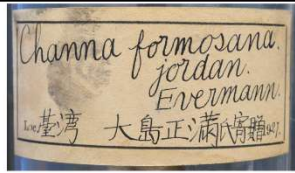 Channa formosana.
jordan.
Evermann.
Loc.臺湾 大島正満氏寄贈